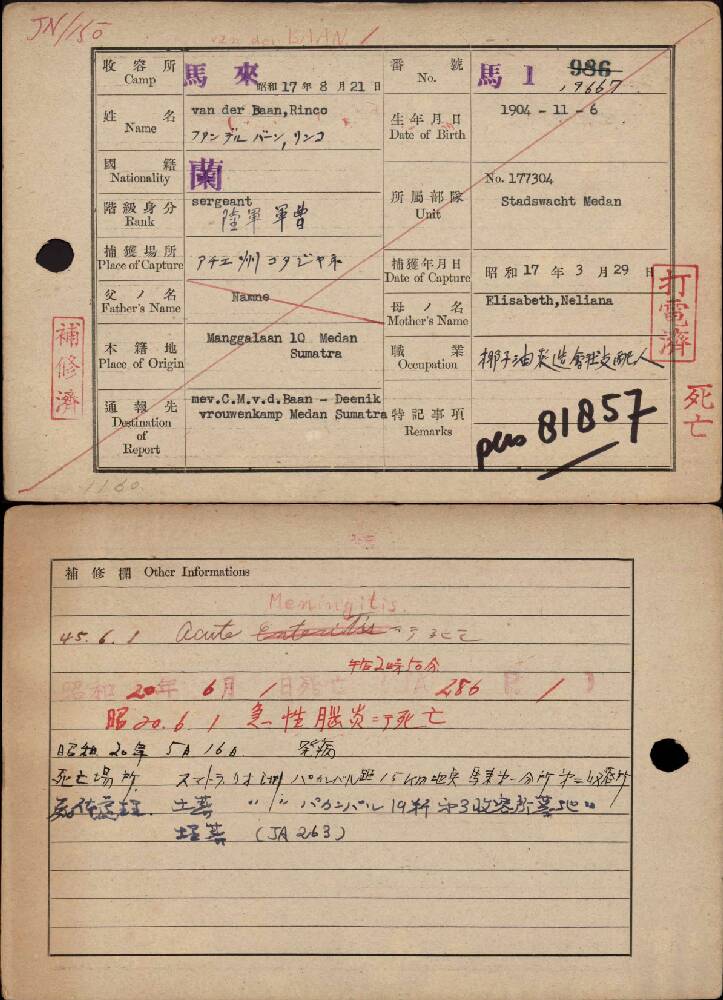 JN/150
van der BAAN /
收容所 Camp
馬來
昭和17年8月21日
番號 No.
馬 1
986
19667
姓名 Name
van der Baan,Rinco
フアン デル バーン, リンコ
生年月日 Date of Birth
1904 - 11 - 6
國籍 Nationality
蘭
階級身分 Rank
sergeant
陸軍 軍曹
所屬部隊 Unit
No. 177304
Stadswacht Medan
捕獲場所 Place of Capture
アチエ州 コタジヤネ
捕獲年月日 Date of Capture
昭和17年3月29日
父ノ名 Father's Name
Nanne
母ノ名 Mother's Name
Elisabeth,Neliana
本籍地 Place of Origin
Manggalaan 10 Medan
Sumatra
職業 Occupation
椰子油製造會社支配人
通報先 Destination of Report
mev.C.M.v.d.Baan - Deenik
vrouwenkamp Medan Sumatra
特記事項 Remarks
pers 81857
補修濟
打電濟
死亡
1160
補修欄 Other Informations
Meningitis.
45. 6. 1 Acute Enteritis ニテ死亡
午后2時50分
昭和20年6月1日死亡 286 1
昭20.6.1 急性腦炎ニテ死亡
昭和20年5月16日 發病
死亡場所 スマトラ リオ州 パカンバル 15Km地点 馬來第一分所第二收容所
死体處理 土葬 〃 〃 パカンバル 19粁 第3收容所墓地
埋葬 (JA 263)